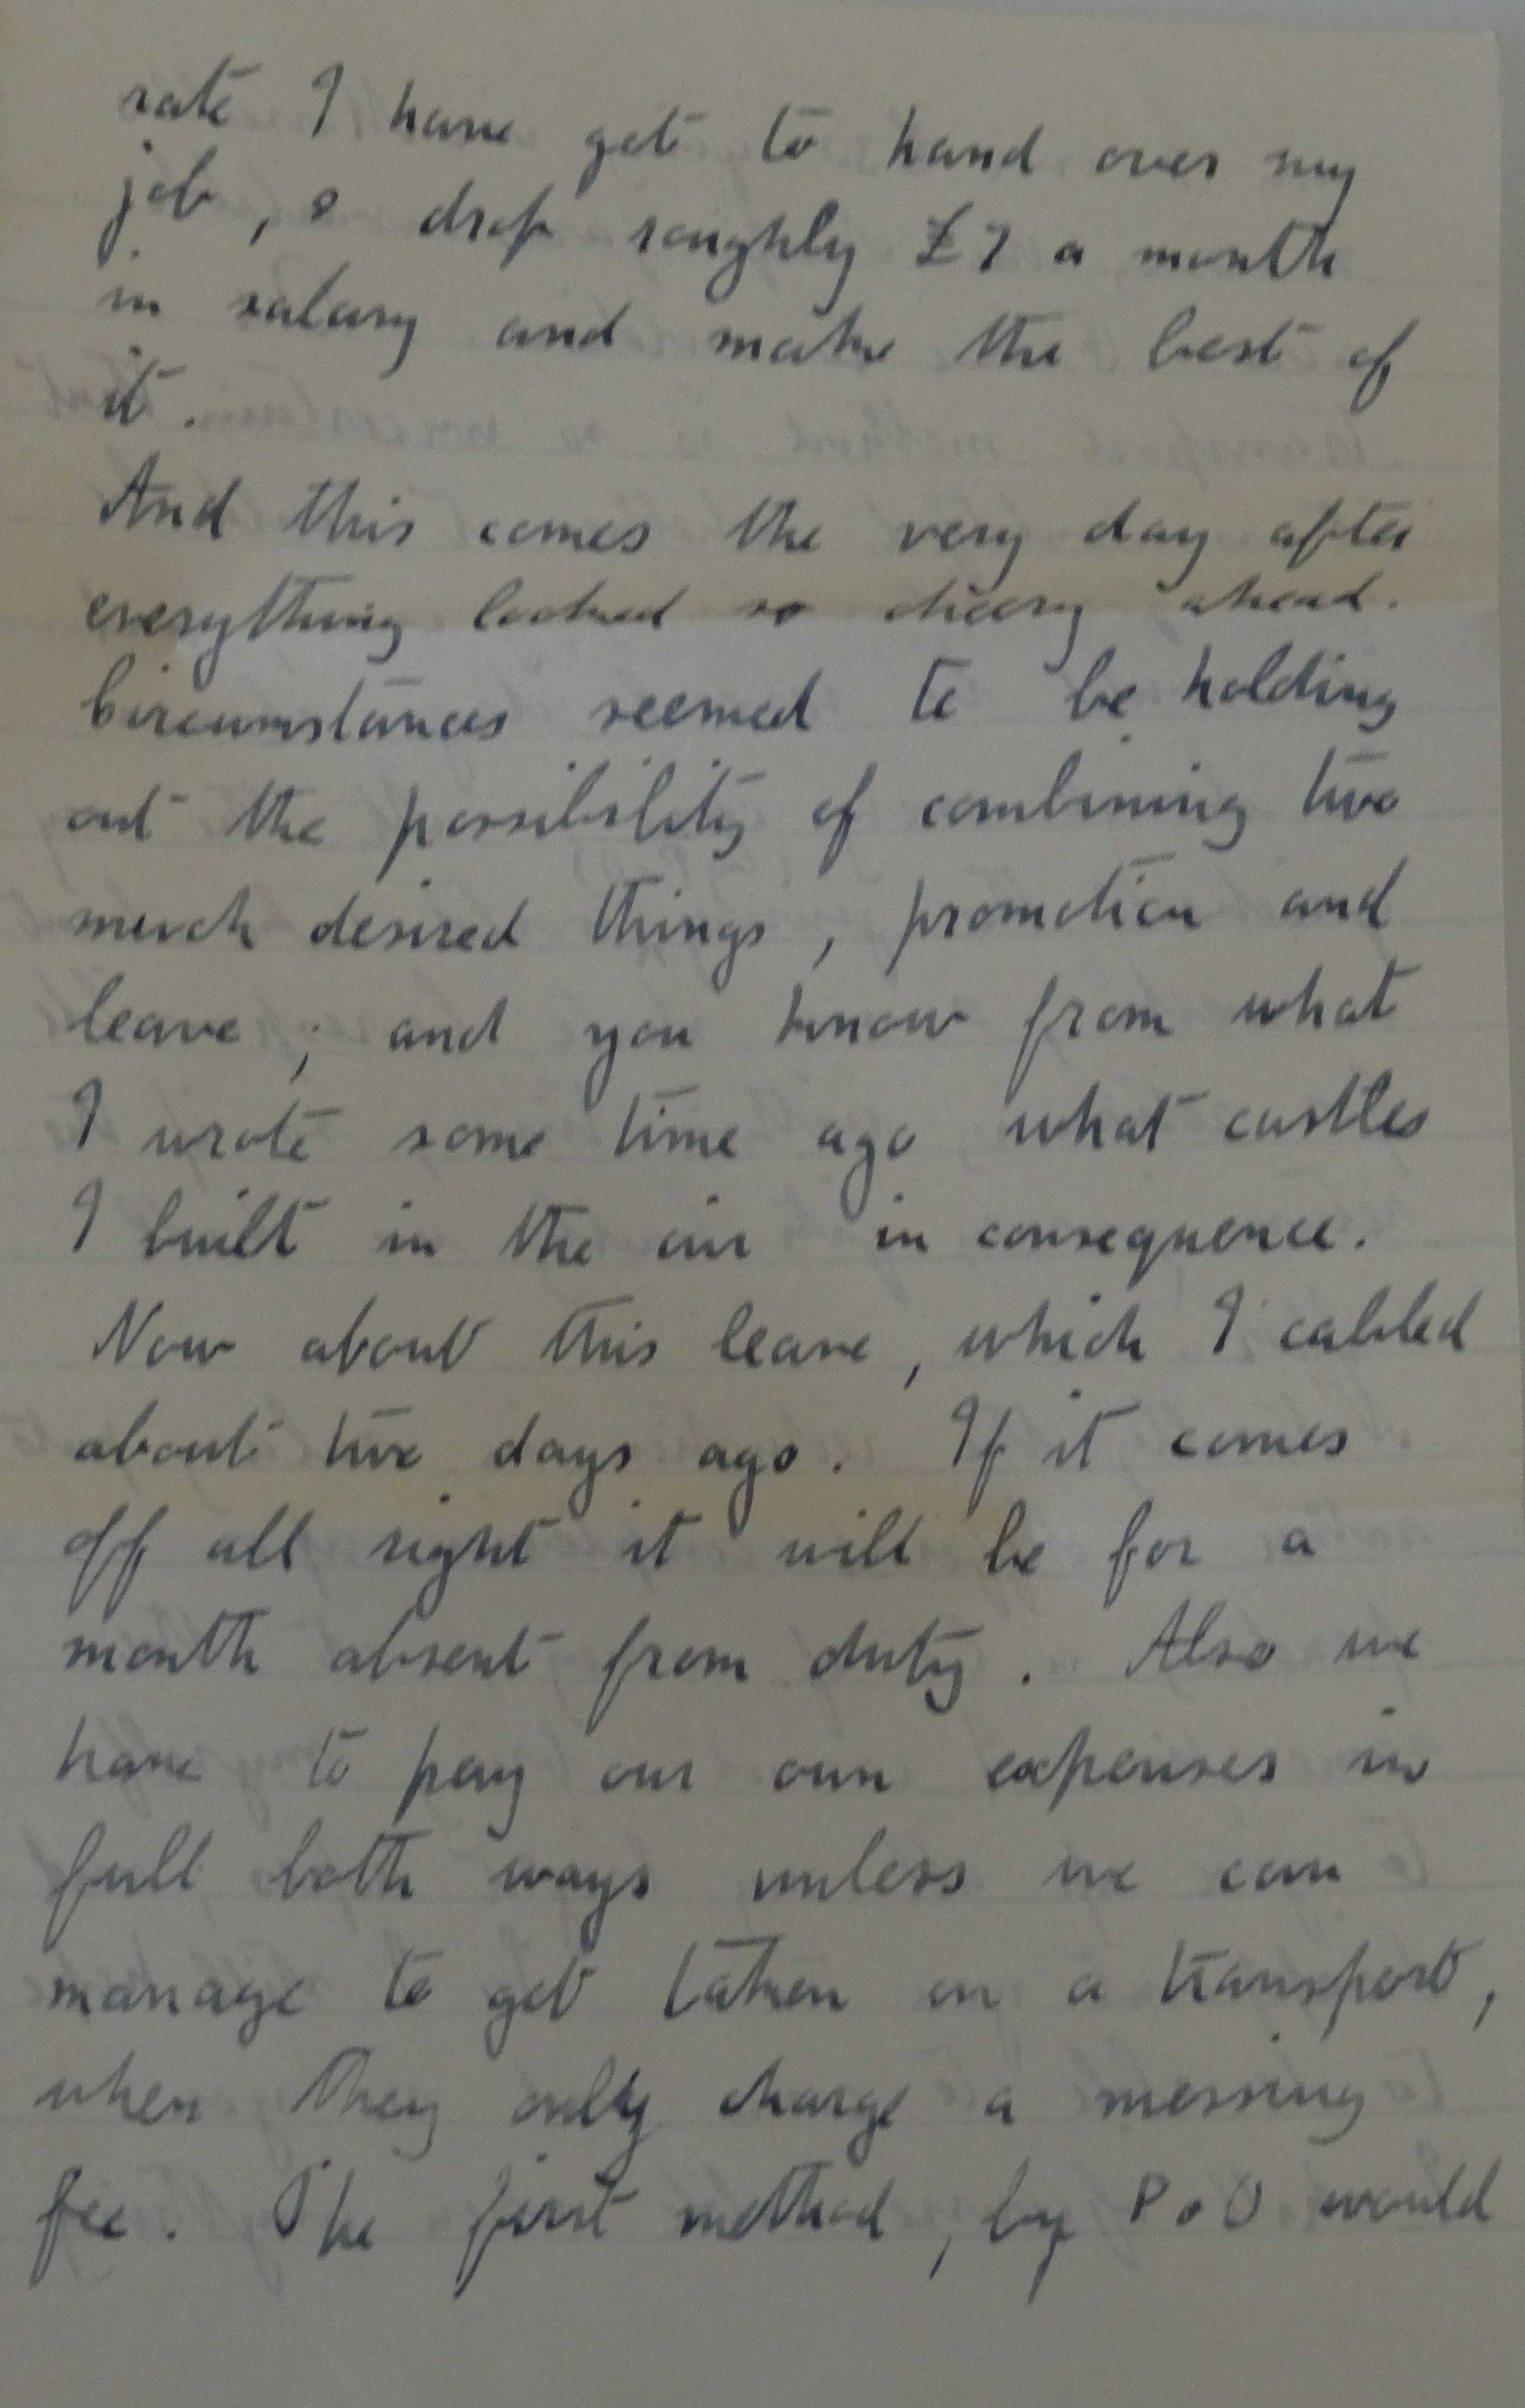 rate I have got to hand over my
job, & drop roughly £7 a month
in salary and make the best of
it.
And this comes the very day after
everything looked so cheery ahead.
Circumstances seemed to be holding
out the possibility of combining two
much desired things, promotion and
leave; and you know from what
I wrote some time ago what castles
I built in the air in consequence.
Now about this leave, which I cabled
about two days ago. If it comes
off all right it will be for a
month absent from duty. Also we
have to pay our own expenses in
full both ways unless we can
manage to get taken on a transport,
when they only charge a messing
fee. The first method, by P & O would